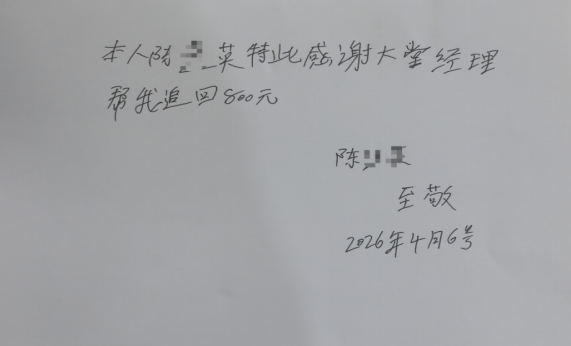 本人陈 英特此感谢大堂经理
帮我追回800元
陈
至敬
2026年4月6号